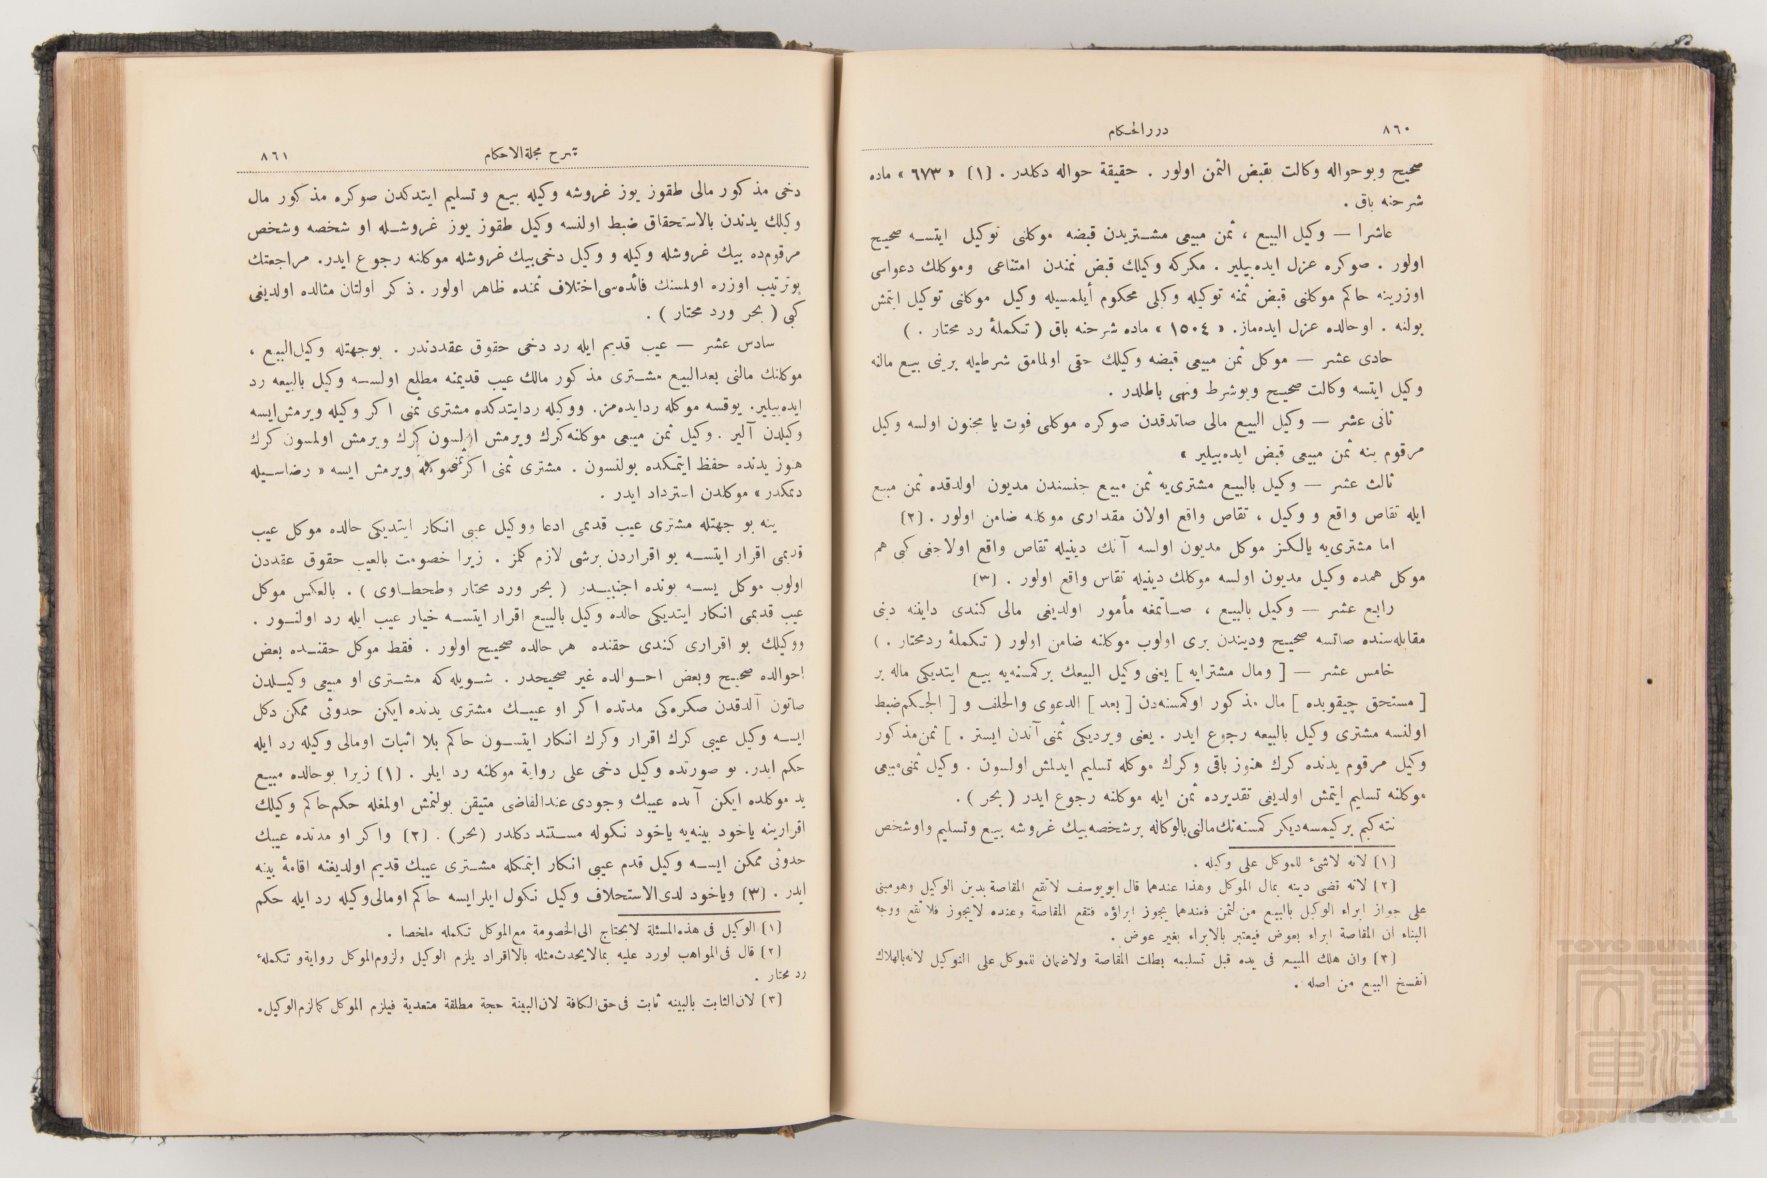 ٨٦٠
دررالحكام
صحيح وبوحواله وكالت بقبض الثمن اولور . حقيقة حواله دكلدر . (١) « ٦٧٣ » ماده
شرحنه باق .
عاشرا — وكيل البيع ، ثمن مبيعى مشتريدن قبضه موكلنى توكيل ايتسه صحيح
اولور . صوكره عزل ايده‌بيلير . مكركه وكيلك قبض ثمندن امتناعى وموكلك دعواسى
اوزرينه حاكم موكلنى قبض ثمنه توكيله وكيلى محكوم أيلمسيله وكيل موكلنى توكيل ايتمش
بولنه . اوحالده عزل ايده‌ماز. « ١٥٠٤ » ماده شرحنه باق ( تكملهٔ رد محتار . )
حادى عشر — موكل ثمن مبيعى قبضه وكيلك حقى اولمامق شرطيله برينى بيع مالنه
وكيل ايتسه وكالت صحيح وبوشرط ونهى باطلدر .
ثانى عشر — وكيل البيع مالى صاتدقدن صوكره موكلى فوت يا مجنون اولسه وكيل
مرقوم ينه ثمن مبيعى قبض ايده‌بيلير ،
ثالث عشر — وكيل بالبيع مشترى‌يه ثمن مبيع جنسندن مديون اولدقده ثمن مبيع
ايله تقاص واقع و وكيل ، تقاص واقع اولان مقدارى موكلنه ضامن اولور . (٢)
اما مشترى‌يه يالكز موكل مديون اولسه آنك دينيله تقاص واقع اولاجغى كبى هم
موكل همده وكيل مديون اولسه موكلك دينيله تقاس واقع اولور . (٣)
رابع عشر — وكيل بالبيع ، صاتمغه مأمور اولديغى مالى كندى داينه دينى
مقابله‌سنده صاتسه صحيح وديندن برى اولوب موكلنه ضامن اولور ( تكملهٔ ردمحتار . )
خامس عشر — [ ومال مشترايه ] يعنى وكيل البيعك بركمسنه‌يه بيع ايتديكى ماله بر
[ مستحق چيقوبده ] مال مذكور اوكمسنه‌دن [ بعد ] الدعوى والحلف و [ الحكم ضبط
اولنسه مشترى وكيل بالبيعه رجوع ايدر . يعنى ويرديكى ثمنى آندن ايستر . ] ثمن‌مذكور
وكيل مرقوم يدنده كرك هنوز باقى وكرك موكله تسليم ايدلمش اولسون . وكيل ثمنى‌مبيعى
موكلنه تسليم ايتمش اولديغى تقديرده ثمن ايله موكلنه رجوع ايدر ( بحر ) .
نته كيم بركيمسه‌ديكر كمسنه‌نك‌مالنى‌بالوكاله برشخصه‌بيك غروشه بيع وتسليم واوشخص
(١) لانه لاشئ للموكل على وكيله .
(٢) لانه قضى دينه بمال الموكل وهذا عندهما قال ابويوسف لاتقع المقاصة بدين الوكيل وهومبنى
على جواز ابراء الوكيل بالبيع من‌الثمن فعندهما يجوز ابراؤه فتقع المقاصة وعنده لايجوز فلاتقع ووجه
البناء ان المقاصة ابراء بعوض فيعتبر بالابراء بغير عوض .
(٣) وان هلك المبيع فى يده قبل تسليمه بطلت المقاصة ولاضمان للموكل على التوكيل لانه‌بالهلاك
انفسخ البيع من اصله .
شرح مجلةالاحكام
٨٦١
دخى مذكور مالى طقوز يوز غروشه وكيله بيع وتسليم ايتدكدن صوكره مذكور مال
وكيلك يدندن بالاستحقاق ضبط اولنسه وكيل طقوز يوز غروشله او شخصه وشخص
مرقوم‌ده بيك غروشله وكيله و وكيل دخى‌بيك غروشله موكلنه رجوع ايدر. مراجعتك
بوترتيب اوزره اولمسنك فائده‌سى‌اختلاف ثمنده ظاهر اولور . ذكر اولنان مثالده اولديغى
كبى ( بحر ورد محتار ) .
سادس عشر — عيب قديم ايله رد دخى حقوق عقددندر . بوجهتله وكيل‌البيع ،
موكلنك مالنى بعدالبيع مشترى مذكور مالك عيب قديمنه مطلع اولسه وكيل بالبيعه رد
ايده‌بيلير. يوقسه موكله ردايده‌مز. ووكيله ردايتدكده مشترى ثمنى اكر وكيله ويرمش‌ايسه
وكيلدن آلير . وكيل ثمن مبيعى موكلنه‌كرك ويرمش اولسون كرك ويرمش اولمسون كرك
هنوز يدنده حفظ ايتمكده بولنسون . مشترى ثمنى اكر موكله ويرمش ايسه « رضاسيله
ديمكدر » موكلدن استرداد ايدر .
ينه بو جهتله مشترى عيب قديمى ادعا ووكيل عيبى انكار ايتديكى حالده موكل عيب
قديمى اقرار ايتسه بو اقراردن برشى لازم كلمز . زيرا خصومت بالعيب حقوق عقددن
اولوب موكل ايسه بونده اجنبيدر ( بحر ورد محتار وطحطاوى ) . بالعكس موكل
عيب قديمى انكار ايتديكى حالده وكيل بالبيع اقرار ايتسه خيار عيب ايله رد اولنور .
ووكيلك بو اقرارى كندى حقنده هر حالده صحيح اولور . فقط موكل حقنده بعض
احوالده صحيح وبعض احوالده غير صحيحدر . شويله‌كه مشترى او مبيعى وكيلدن
صاتون آلدقدن صكره‌كى مدتده اكر او عيبك مشترى يدنده ايكن حدوثى ممكن دكل
ايسه وكيل عيبى كرك اقرار وكرك انكار ايتسون حاكم بلا اثبات اومالى وكيله رد ايله
حكم ايدر. بو صورتده وكيل دخى على رواية موكلنه رد ايلر . (١) زيرا بوحالده مبيع
يد موكلده ايكن آنده عيبك وجودى عندالقاضى متيقن بولنمش اولمغله حكم‌حاكم وكيلك
اقرارينه ياخود بينه‌يه ياخود نكوله مستند دكلدر (بحر) . (٢) واكر او مدتده عيبك
حدوثى ممكن ايسه وكيل قدم عيبى انكار ايتمكله مشترى عيبك قديم اولديغنه اقامهٔ بينه
ايدر . (٣) وياخود لدى‌الاستحلاف وكيل نكول ايلرايسه حاكم اومالى‌وكيله رد ايله حكم
(١) الوكيل فى هذه‌المسئلة لايحتاج الى‌الخصومة مع‌الموكل تكمله ملخصا .
(٢) قال فى‌المواهب لورد عليه بمالايحدث‌مثله بالاقراد يلزم الوكيل ولزوم‌الموكل روايةو تكمله‌ء
رد محتار .
(٣) لان‌الثابت بالبينه ثابت فى‌حق‌الكافة لان‌البينة حجة مطلقة متعدية فيلزم الموكل كمالزم‌الوكيل.
TOYO BUNKO